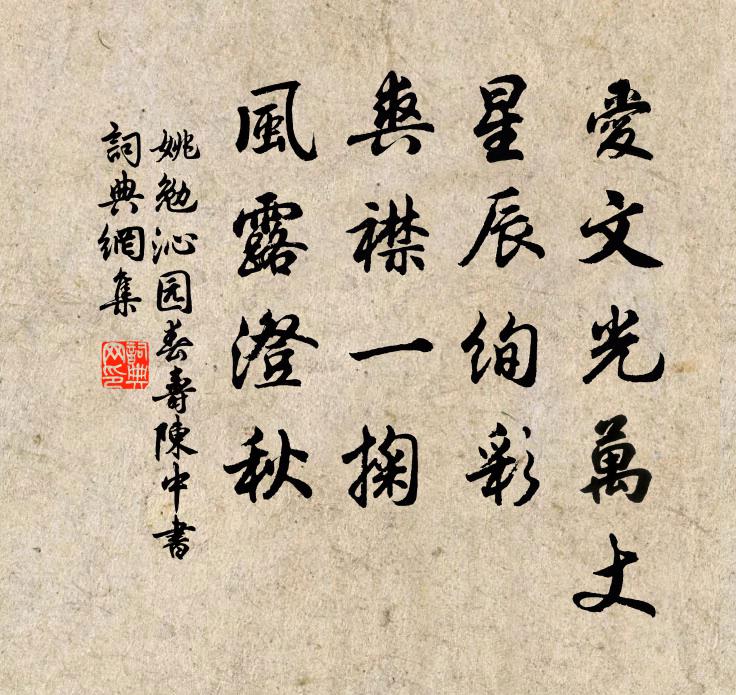 愛文光萬丈
星辰絢彩
爽襟一掬
風露澄秋
姚勉沁园春壽陳中書
詞典網集
詞典网印